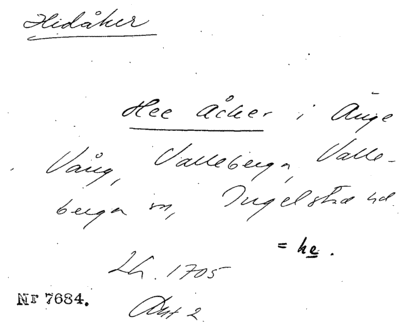 Hidåker
Hee Åcker i Änge
Vång, Valleberga, Valle-
berga sn, Ingelstad hd.
= he.
Lh. 1705
Akt 2.
NF 7684.